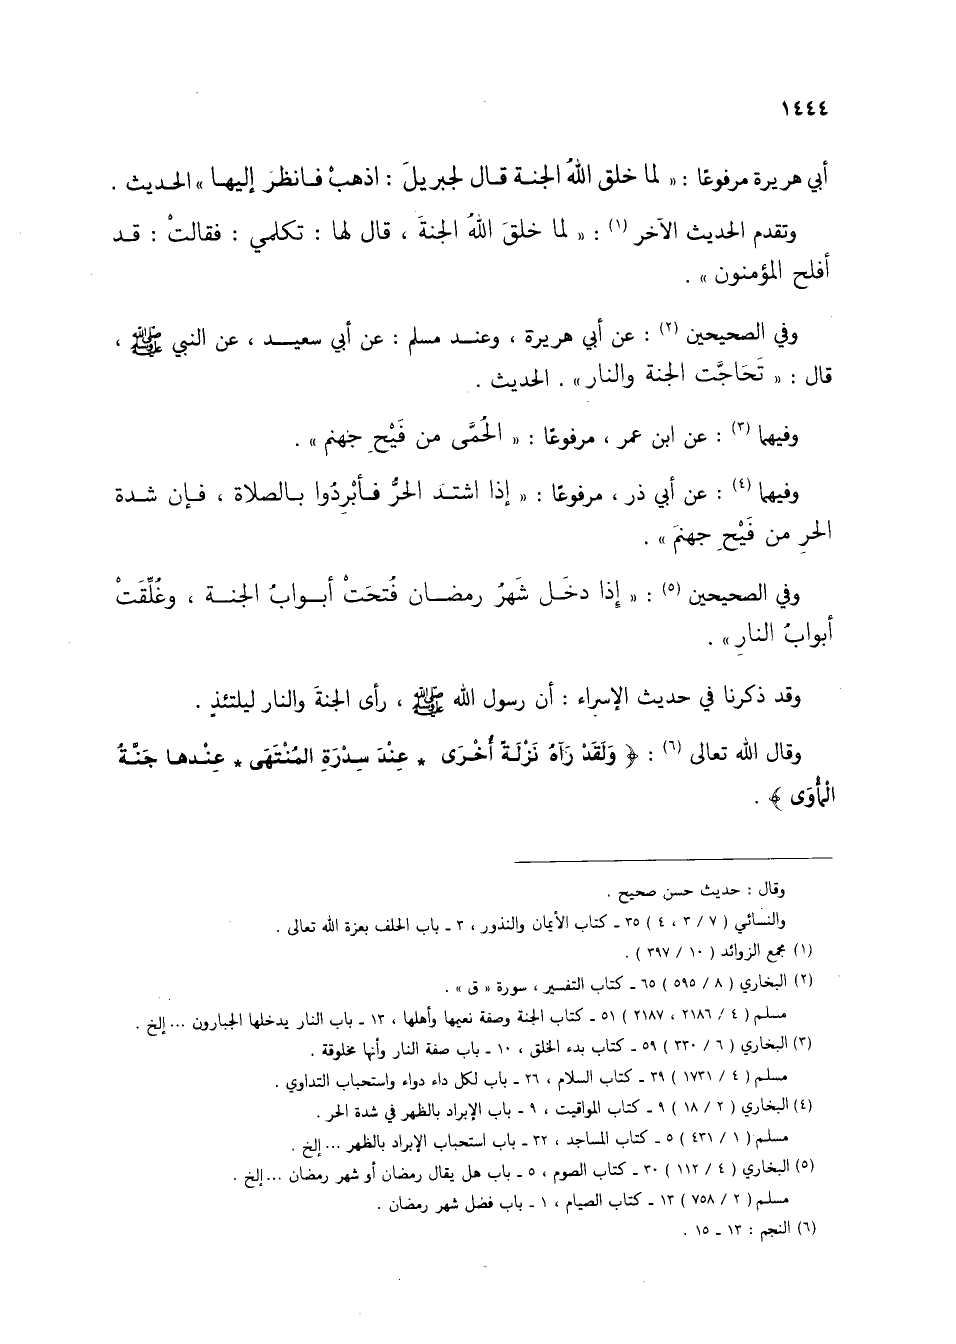 ١٤٤٤
أبي هريرة مرفوعًا : « لما خلق اللهُ الجنة قـال لجبريلَ : اذهبْ فـانظرَ إليهـا » الحـديث .
وتقدم الحديث الآخر (١) : « لما خلقَ اللهُ الجنةَ ، قال لها : تكلمي : فقالتْ : قـد
أفلح المؤمنون » .
وفي الصحيحين (٢) : عن أبي هريرة ، وعنـد مسلم : عن أبي سعيـــد ، عن النبي ﷺ ،
قال : « تَحَاجَّت الجنة والنار » . الحديث .
وفيها (٣) : عن ابن عمر ، مرفوعًا : « الحُمَّى من فَيْحِ جهنم » .
وفيها (٤) : عن أبي ذر ، مرفوعًا : « إذا اشتـدَ الحرُّ فـأبْرِدُوا بـالصلاة ، فـإن شـدة
الحرِ من فَيْحِ جهنمَ » .
وفي الصحيحين (٥) : « إِذا دخَـل شَهرُ رمضـان فُتحَتْ أبـوابُ الجنـة ، وغُلِّقَتْ
أبوابُ النارِ » .
وقد ذكرنا في حديث الإسراء : أن رسول الله ﷺ ، رأى الجنةَ والنار ليلتئذٍ .
وقال الله تعالى (٦) : ﴿ وَلَقَدْ رَآهُ نَزْلَةً أُخْرَى * عِنْدَ سِدْرَةِ المُنْتَهَى * عِنْدهـا جَنَّةُ
الْمَأْوَى ﴾ .
وقال : حديث حسن صحيح .
والنسائي ( ٧ / ٣ ، ٤ ) ٣٥ ـ كتاب الأيمان والنذور ، ٣ ـ باب الحلف بعزة الله تعالى .
(١) مجمع الزوائد ( ١٠ / ٣٩٧ ) .
(٢) البخاري ( ٨ / ٥٩٥ ) ٦٥ ـ كتاب التفسير ، سورة « ق » .
مسلم ( ٤ / ٢١٨٦ ، ٢١٨٧ ) ٥١ ـ كتاب الجنة وصفة نعيمها وأهلها ، ١٣ ـ باب النار يدخلها الجبارون ... إلخ .
(٣) البخاري ( ٦ / ٣٣٠ ) ٥٩ ـ كتاب بدء الخلق ، ١٠ ـ باب صفة النار وأنها مخلوقة .
مسلم ( ٤ / ١٧٣١ ) ٣٩ ـ كتاب السلام ، ٢٦ ـ باب لكل داء دواء واستحباب التداوي .
(٤) البخاري ( ٢ / ١٨ ) ٩ ـ كتاب المواقيت ، ٩ ـ باب الإبراد بالظهر في شدة الحر .
مسلم ( ١ / ٤٣١ ) ٥ ـ كتاب المساجد ، ٣٢ ـ باب استحباب الإبراد بالظهر ... إلخ .
(٥) البخاري ( ٤ / ١١٢ ) ٣٠ ـ كتاب الصوم ، ٥ ـ باب هل يقال رمضان أو شهر رمضان ... إلخ .
مسلم ( ٢ / ٧٥٨ ) ١٣ ـ كتاب الصيام ، ١ ـ باب فضل شهر رمضان .
(٦) النجم : ١٣ ـ ١٥ .